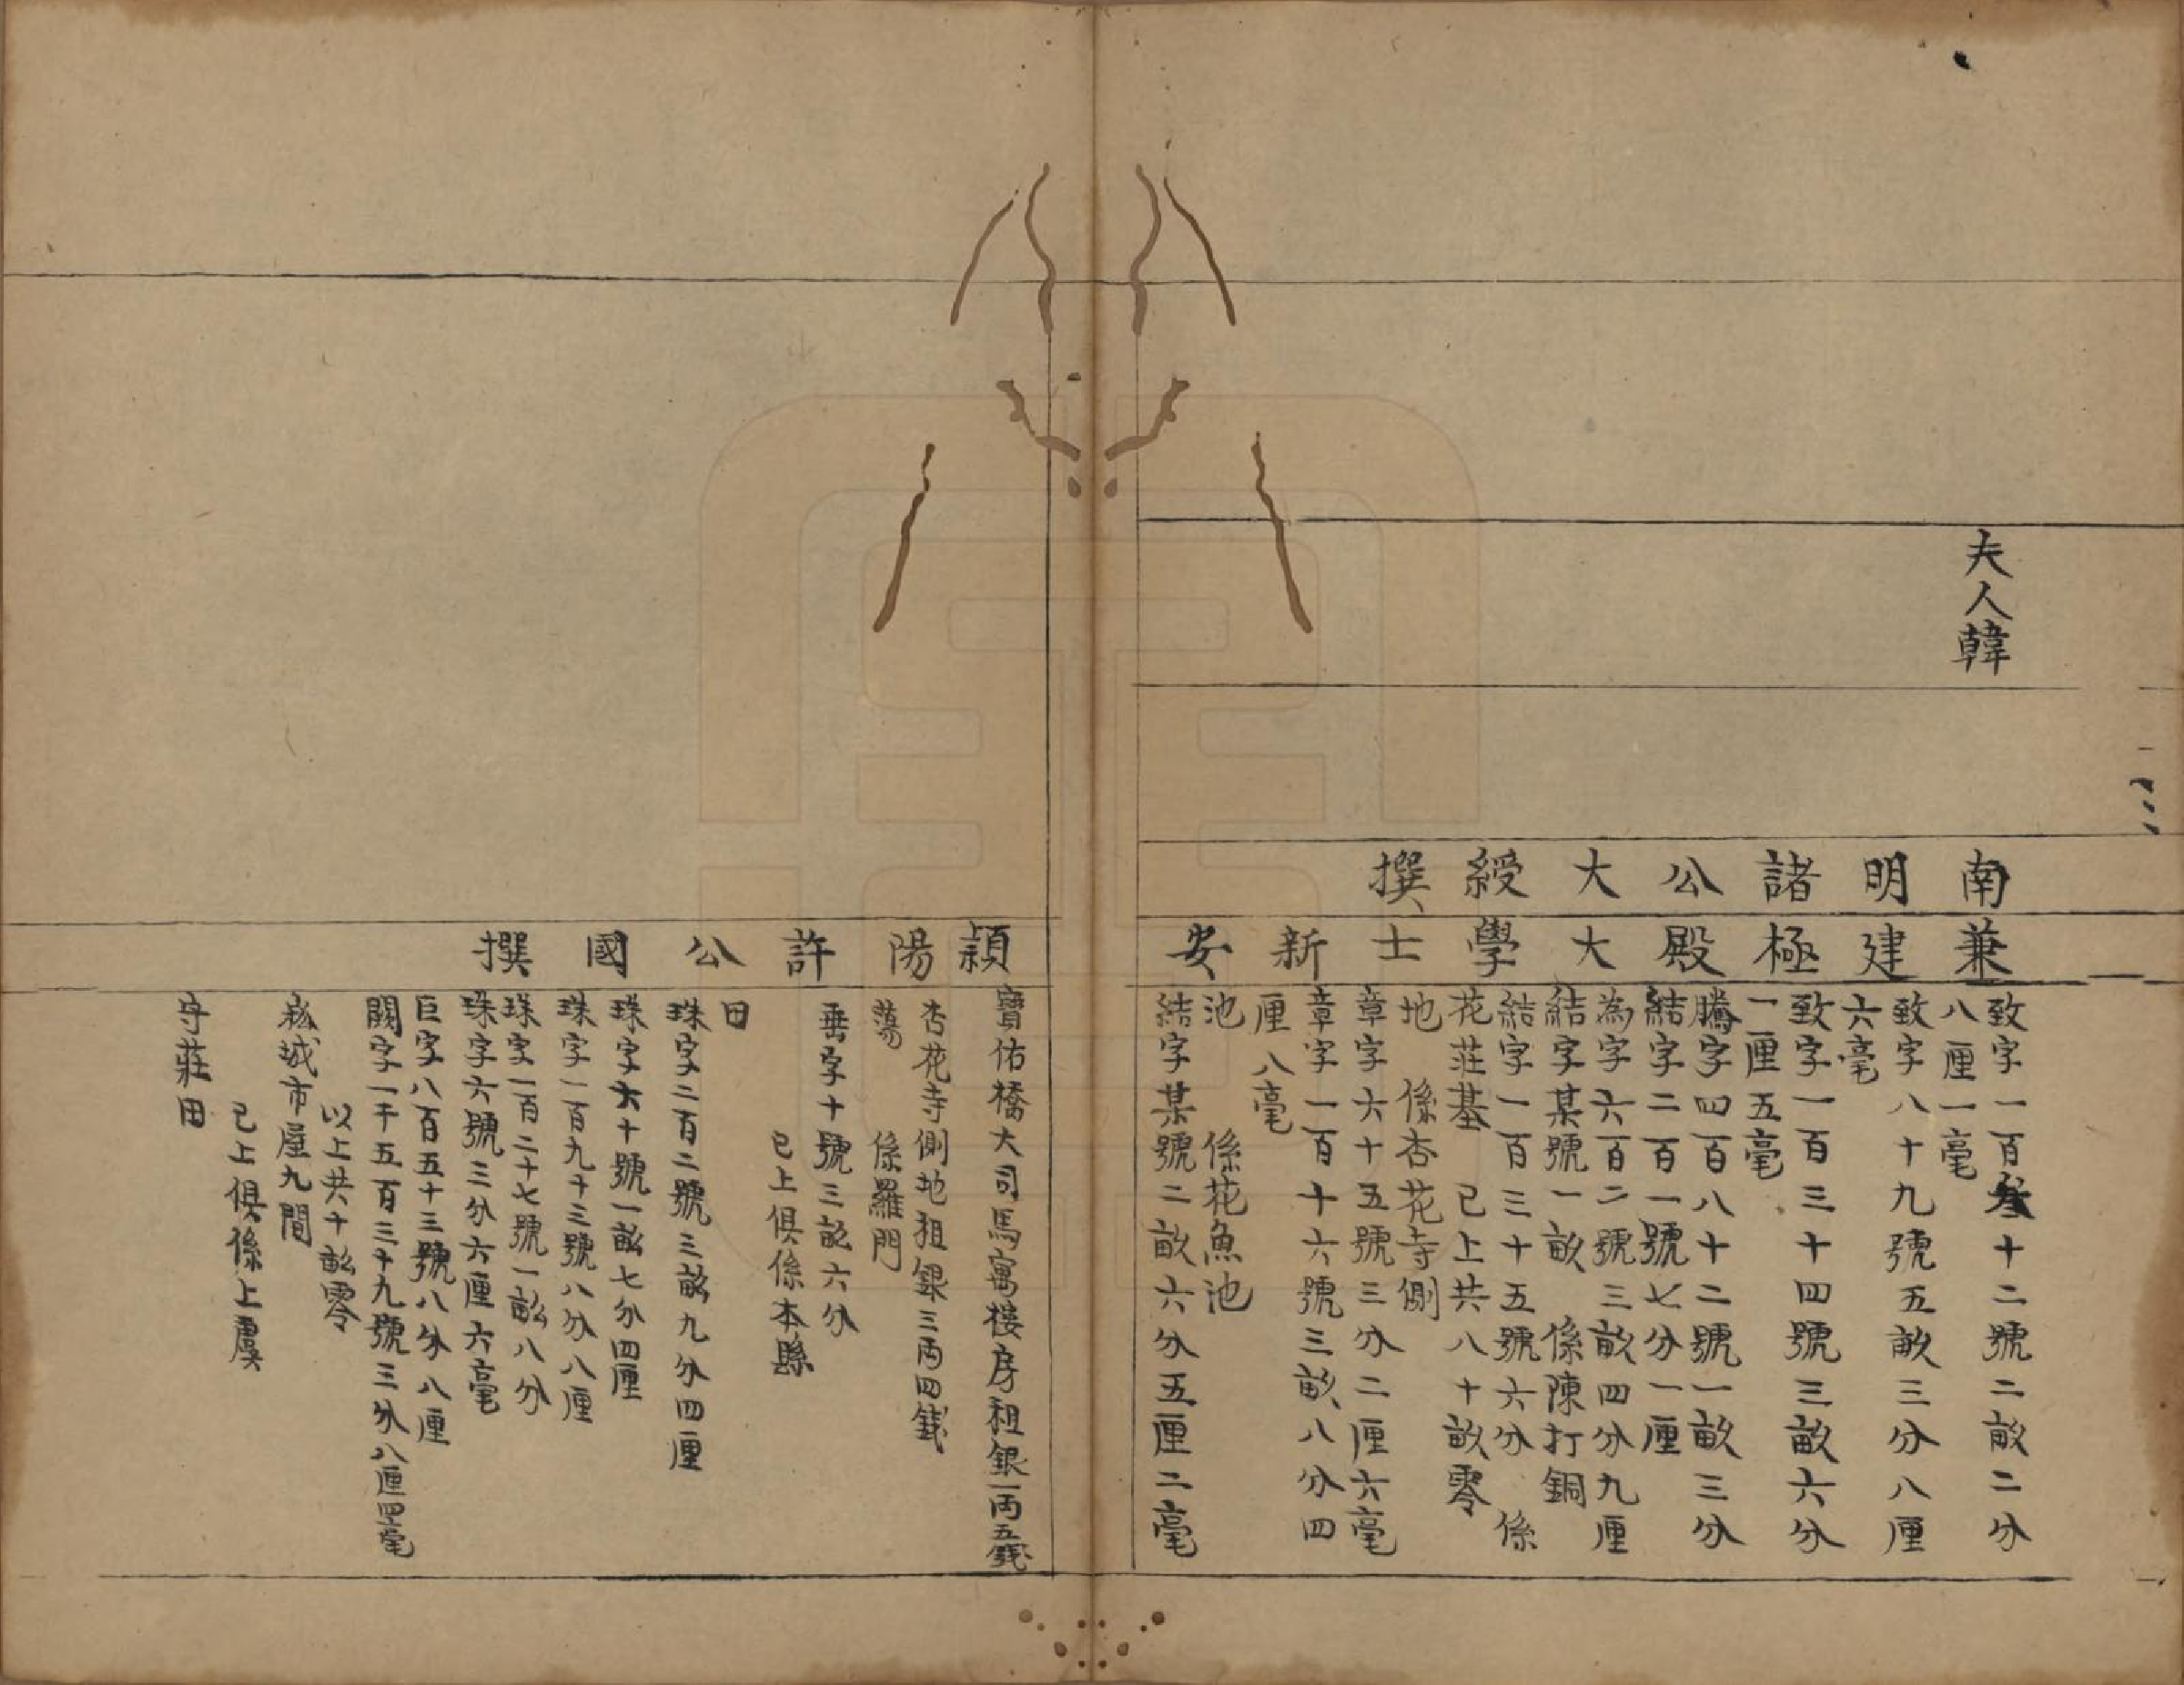 夫人韓
南明諸公大綬撰
兼建極殿大學士新安
致字一百叁十二號二畝二分
八厘一毫
致字八十九號五畝三分八厘
六毫
致字一百三十四號三畝六分
一厘五毫
騰字四百八十二號一畝三分
結字二百一號七分一厘
為字六百二號三畝四分九厘
結字某號一畝 係陳打銅
結字一百三十五號六分 係
花莊基 已上共八十畝零
地 係杏花寺側
章字六十五號三分二厘六毫
章字一百十六號三畝八分四
厘八毫
池 係花魚池
結字某號二畝六分五厘二毫
穎陽許公國撰
寶佑橋大司馬寓樓房租銀一両五錢
杏花寺側地租銀三両四錢
蕩 係羅門
垂字十號三畝六分
已上俱係本縣
田
珠字二百二號三畝九分四厘
珠字六十號一畝七分四厘
珠字一百九十三號八分八厘
珠字一百二十七號一畝八分
珠字六號三分六厘六毫
巨字八百五十三號八分八厘
闕字一千五百三十九號三分八厘四毫
以上共十畝零
崧城市屋九間
已上俱係上虞
守莊田